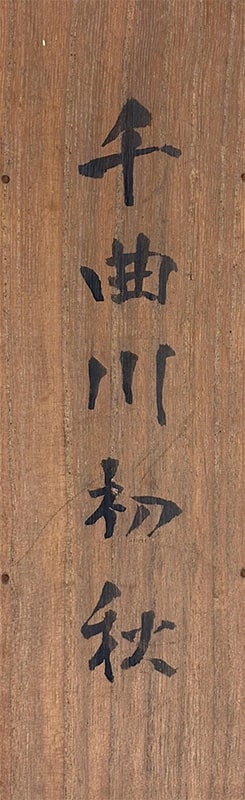 千曲川初秋